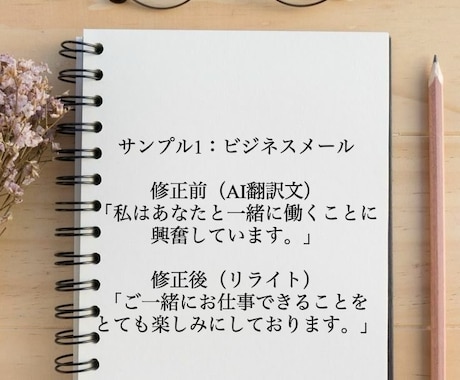 サンプル1：ビジネスメール
修正前（AI翻訳文）
「私はあなたと一緒に働くことに
興奮しています。」
修正後（リライト）
「ご一緒にお仕事できることを
とても楽しみにしております。」